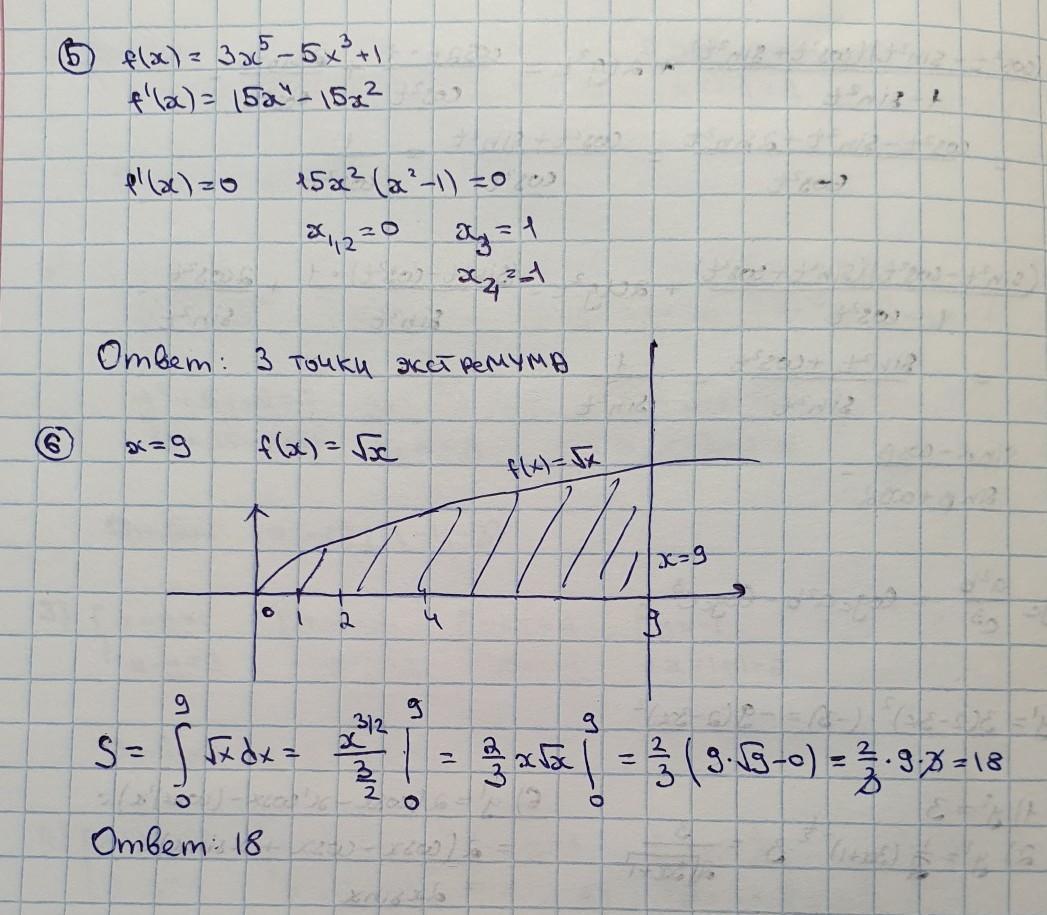 ⑤ f(x) = 3x⁵ - 5x³ + 1
f'(x) = 15x⁴ - 15x²
f'(x) = 0 15x² (x² - 1) = 0
x₁,₂ = 0 x₃ = 1
x₄ = -1
Ответ: 3 точки экстремума
⑥ x = 9 f(x) = √x
f(x) = √x
x = 9
0 1 2 4 9
S = ∫₀⁹ √x dx = x^(3/2) / (3/2) |₀⁹ = 2/3 x√x |₀⁹ = 2/3 (9·√9 - 0) = 2/3 · 9 · 3 = 18
Ответ: 18